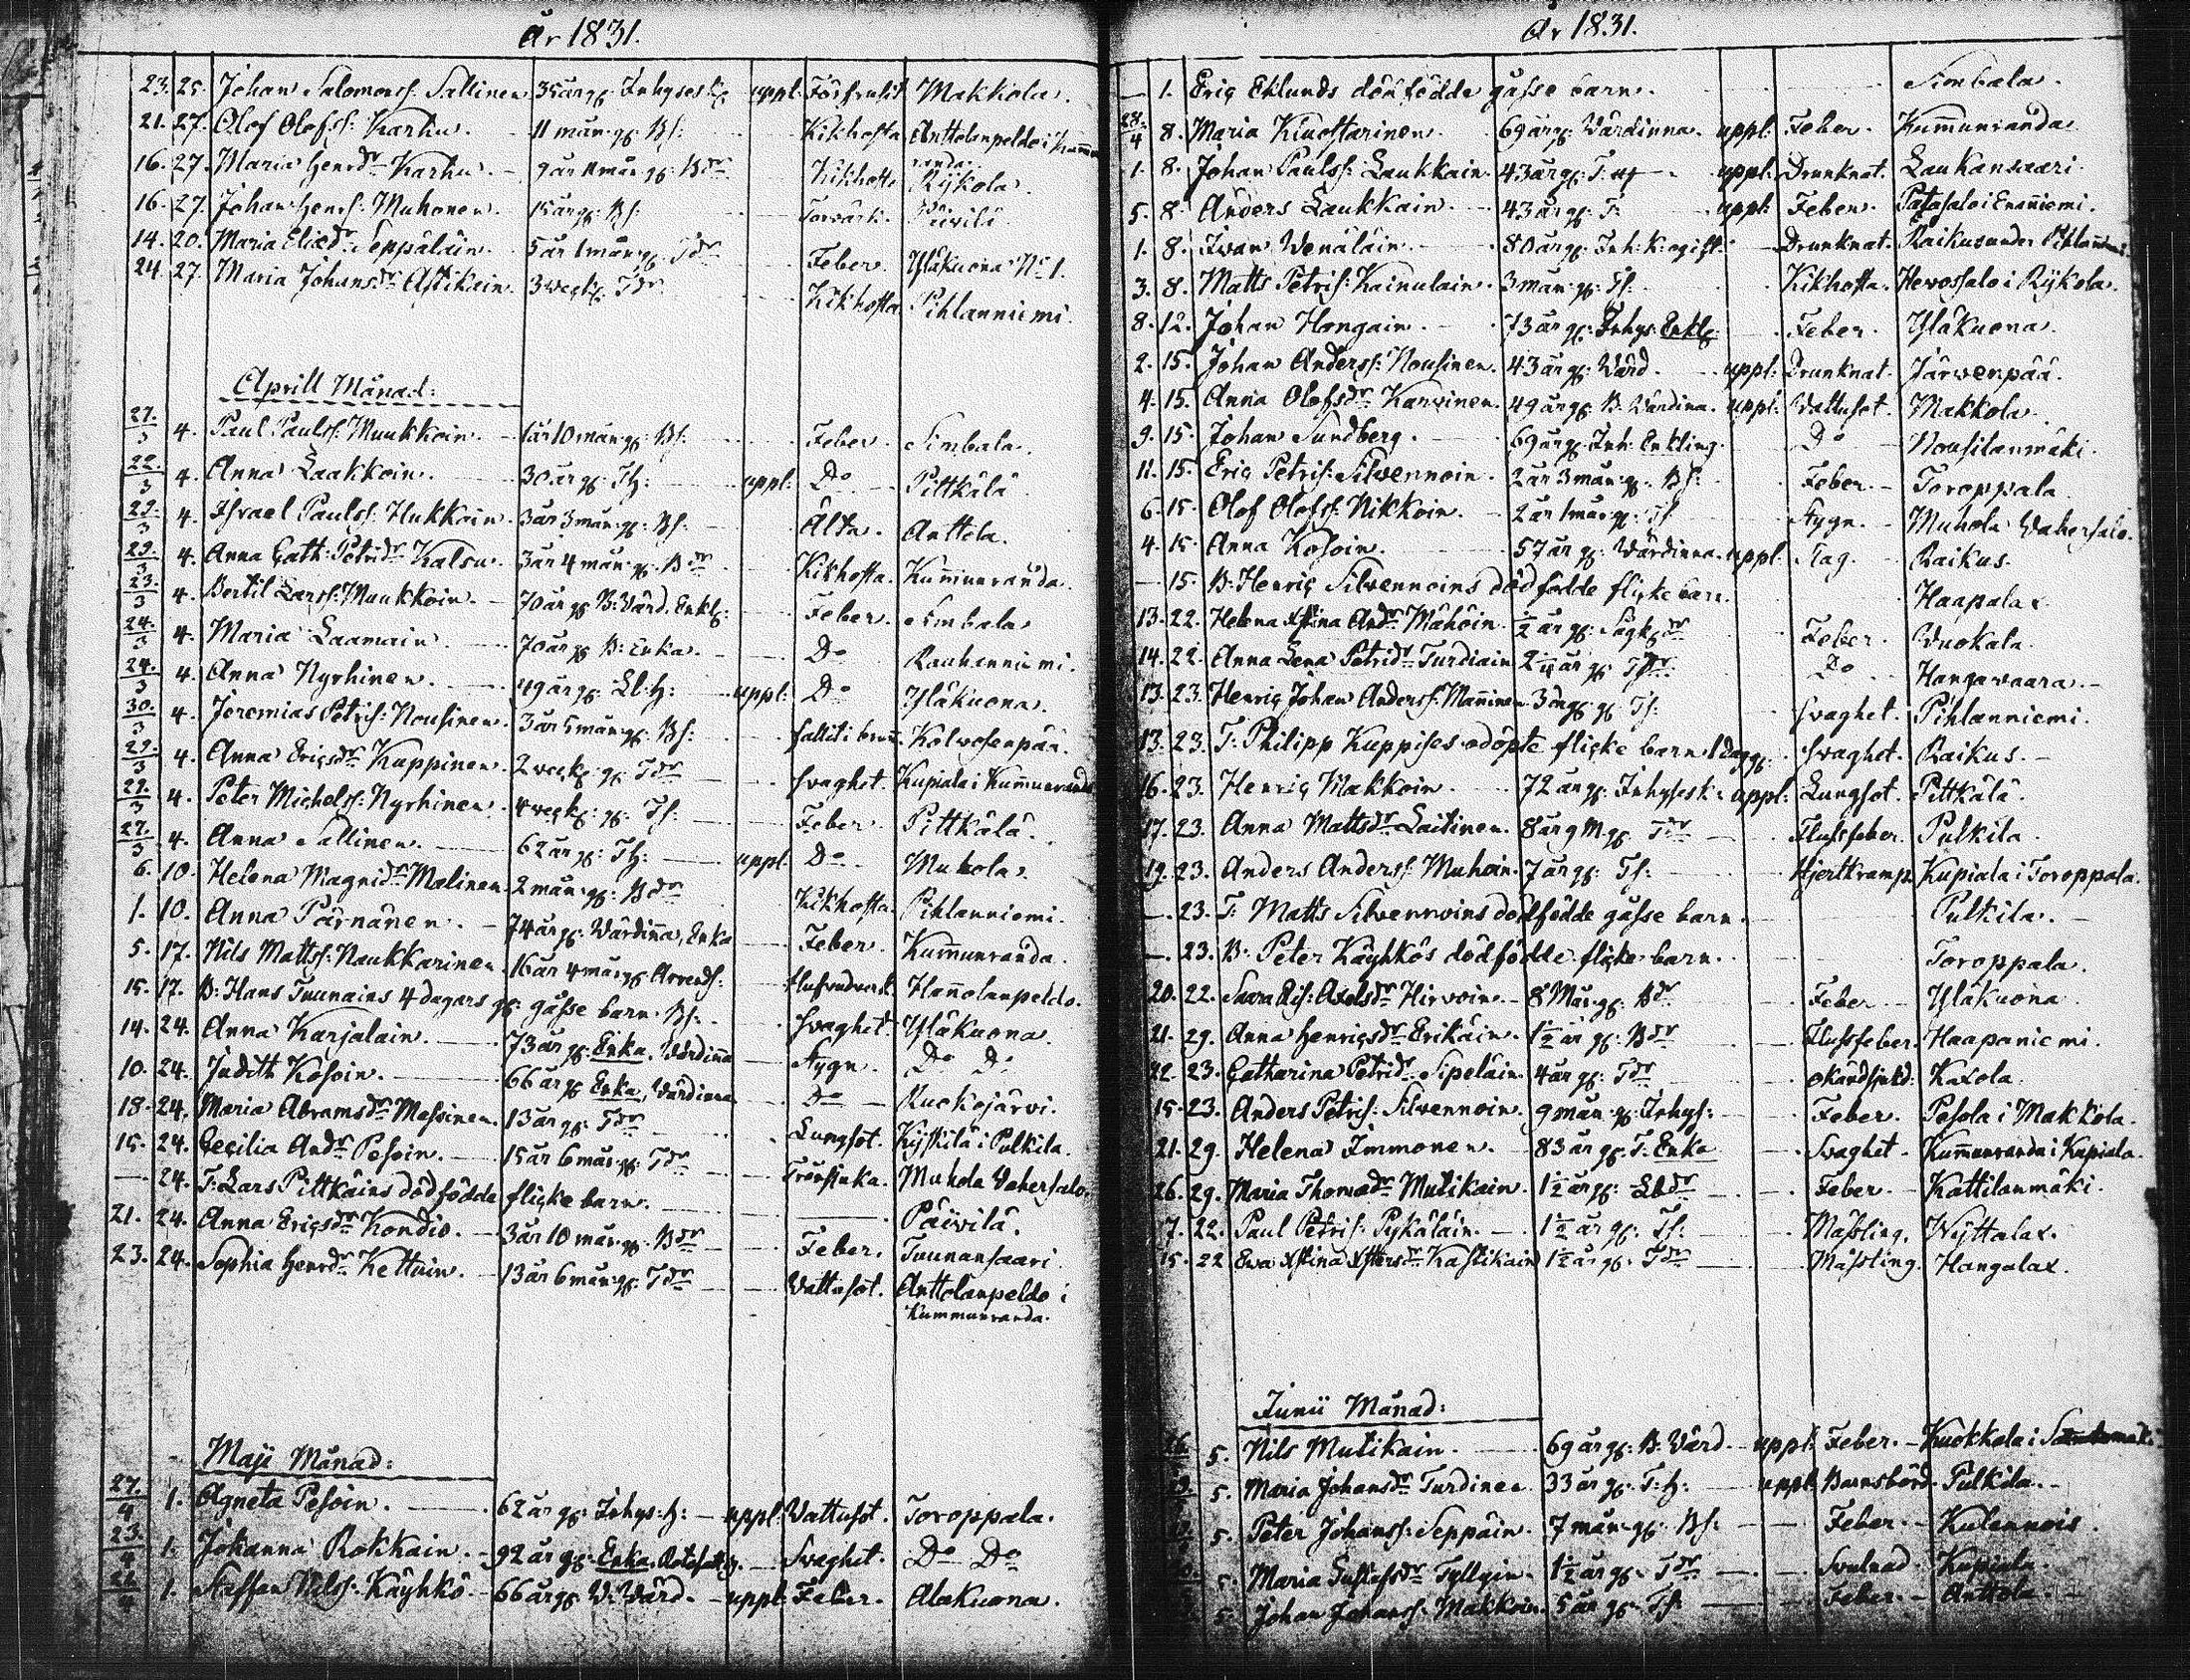 År 1831.
23. 25. Johan Salomonss: Sallinen 35 år gl: Inhyses K: uppl: Förfrusit Makkola.
21. 27. Olof Olofss: Karhu. 11 mån: gl: Bs: Kikhosta Anttolanpeldo i Kummu
randa.
16. 27. Maria Henrdr Karhu. 9 år 11 mån: gl: Bdr Kikhosta Rÿkola.
16. 27. Johan Henrs: Muhonen. 15 år gl: Bs: Torvärk. Päivilä
14. 20. Maria Eliædr Seppäläin. 5 år 1 mån: gl: Tdr Feber. Yläkuona No 1.
24. 27. Maria Johansdr Astikain. 3 veck: Tdr Kikhosta Pihlanniemi.
Aprill Månad:
27/3 4. Paul Paulss: Muukkoin. 1 år 10 mån: gl: Bs: Feber. Simbala.
22/3 4. Anna Laakkoin. 30 år gl: Th: uppl: Do Pittkälä.
29/3 4. Israel Paulss: Hukkain. 3 år 3 mån: gl: Bs: Ältn. Anttola.
29/3 4. Anna Cath: Petridr Kalsu. 3 år 4 mån: gl: Bdr Kikhosta. Kummunranda.
23/3 4. Bertil Larss: Muukkoin. 70 år gl B: Värd. Enkl: Feber. Simbala
24/3 4. Maria Laamain. 70 år gl B: Enka. Do Rauhanniemi.
24/3 4. Anna Nyrhinen. 49 år gl: Lt: h: uppl: Do Yläkuona.
30/3 4. Jeremias Petris: Nousinen. 3 år 5 mån: gl: Bs: fallit i brunn. Kolvosenpää.
29/3 4. Anna Ericsdr Kuppinen. 2 veck: gl: Tdr Svaghet. Kupiala i Kummunranda
29/3 4. Peter Michelss: Nyrhinen. 4 veck: gl: Ts: Feber. Pittkälä.
27/3 4. Anna Sallinen. 62 år gl: Th: uppl: Do Muhola.
6. 10. Helena Magnidr Malinen. 2 mån: gl: Bdr Kikhosta. Pihlanniemi.
1. 10. Anna Pärnänen. 74 år gl: Värdinna, Enka Feber. Kummunranda.
5. 17. Nils Mattss: Naukkarinen. 16 år 4 mån gl: Arrends: Hanolanpeldo.
15. 17. B: Hans Tuunains 4 dagars gl: gåsse barn. Bs: Svaghet. Yläkuona.
14. 24. Anna Karjalain. 73 år gl: Enka. Värdinna Stygn. Do Do
10. 24. Judith Kosoin. 66 år gl Enka, Värdinna Do Ruokojärvi.
18. 24. Maria Abramsdr Massinen. 13 år gl: Tdr Lungsot. Kÿstilä i Pulkila.
15. 24. Cecilia Andr Pesoin. 15 år 6 mån: gl: Tdr Trånsiuka. Muhola Vahersalo.
— 24. T: Lars Pittkäins dödfödda flicke barn. Päivilä.
21. 24. Anna Ericsdr Kondio. 3 år 10 mån: gl: Bdr Feber. Tuunansaari.
23. 24. Sophia Henrdr Kettuin. 13 år 6 mån: gl: Tdr Vattusot. Anttolanpeldo i
Kummunranda.
Maji Månad:
27/4 1. Agneta Pesoin. 62 år gl: Inhys: h: uppl: Vattusot. Toroppala.
23/4 1. Johanna Rokkain. 92 år gl: Enka. Svaghet. Do Do
1. Staffan Nilss: Käyhkö. 66 år gl: V: Värd. uppl: Feber. Alakuona.
År 1831.
— 1. Eric Eklunds dödfödde gåsse barn. Simbala.
28/4 8. Maria Kluostarinen. 69 år gl: Värdinna. uppl: Feber. Kummunranda.
1. 8. Johan Paulss: Laukkain. 43 år gl: uppl: Drunknat. Laukansaari.
5. 8. Anders Laukkain. 43 år gl: T: uppl: Feber. Patasalo i Enanniemi.
1. 8. Iwan Wenäläin. 80 år gl: Inh: K: ogift. Drunknat. Raikus under Pihlanniemi
3. 8. Matts Petris: Kainulain. 3 mån: gl: Ts: Kikhosta. Hevossalo i Rÿkola.
8. 12. Johan Hongain. 73 år gl: Inhys: Enkl: Feber. Yläkuona.
2. 15. Johan Anderss: Nousinen. 43 år gl: Värd. uppl: Drunknat. Järvenpää.
4. 15. Anna Olofsdr Karvinen. 49 år gl: B: Värdina. uppl: Vattusot. Makkola.
9. 15. Johan Sundberg. 69 år gl: Inh: Enkling. Do Nousilanmäki.
11. 15. Eric Petris: Silvennoin. 2 år 3 mån: gl: Bs: Feber. Toroppala.
6. 15. Olof Olofss: Nikkoin. 2 år 1 mån: gl: Ts Stygn. Muhola Vahersalo.
4. 15. Anna Kosoin. 57 år gl: Värdinna. uppl: Slag. Raikus.
— 15. B: Henric Silvennoins dödfödde flicke barn. Haapalax.
13. 22. Helena Xstina Andr Mähöin. ½ år gl: Feber. Vuokala.
14. 22. Anna Lena Petridr Turdiain 2¼ år gl Tdr Do Hangavaara.
13. 23. Henric Johan Anderss: Manninen 3 dag: gl Ts: Svaghet. Pihlanniemi.
13. 23. T: Philipp Kuppises odöpte flicke barn 1 dag gl. Svaghet. Raikus.
16. 23. Henric Makkoin. 72 år gl: Inhyses k: uppl: Lungsot. Pittkälä.
17. 23. Anna Mattsdr Laitinen. 8 år 9 M. gl: Tdr Flussfeber. Pulkila.
19. 23. Anders Anderss: Muhoin. 7 år gl: Ts: Hjertkramp. Kupiala i Toroppala.
— 23. T: Matts Silvennoins dödfödde gåsse barn. Pulkila.
— 23. B: Peter Käyhkös dödfödde flicke barn. Toroppala.
20. 22. Sara Lis: Axelsdr Hirvoin. 8 Mån: gl: Bdr Feber Yläkuona
21. 29. Anna Henricsdr Erikäin. 1½ år gl: Bdr Flussfeber. Haapaniemi.
22. 23. Catharina Petridr Sipeläin. 4 år gl: Tdr okändsjukd: Kaxola.
15. 23. Anders Petris: Silvennoin. 9 mån: gl: Inhys: Feber. Pesola i Makkola.
21. 29. Helena Immonen. 83 år gl: T: Enka Svaghet. Kummunranda i Kupiala.
26. 29. Maria Thomædr Mutikain. 1½ år gl: Ltdr Feber. Kattilanmäki.
7. 22. Paul Petris: Pykäläin. 1½ år gl: Ts: Mässling. Nÿttalax.
15. 22 Ewa Xstina Xstersdr Kastikain 1½ år gl: Tdr Mässling. Hangalax.
Junii Månad:
5. Nils Mutikain. 69 år gl: B: Värd uppl: Feber. Kuokkala i
5. Maria Johansdr Turdinen 33 år gl: T: h: uppl: Barnsbörd. Pulkila.
5. Peter Johanss: Seppäin. 7 mån: gl: Bs: Feber. Kulennois.
5. Maria Gustafsdr Tyllyin. 1½ år gl: Tdr Svulnad. Kupiala.
5. Johan Johanss: Makkoin. 5 år gl: Ts: Feber. Anttola.